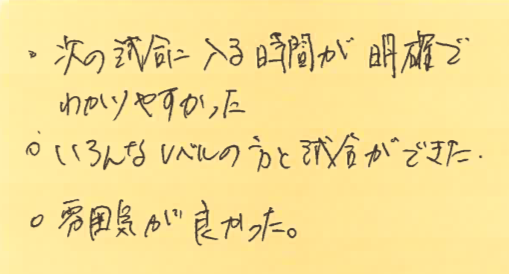 。次の試合に入る時間が明確で
わかりやすかった
。いろんなレベルの方と試合ができた.
。雰囲気が良かった。